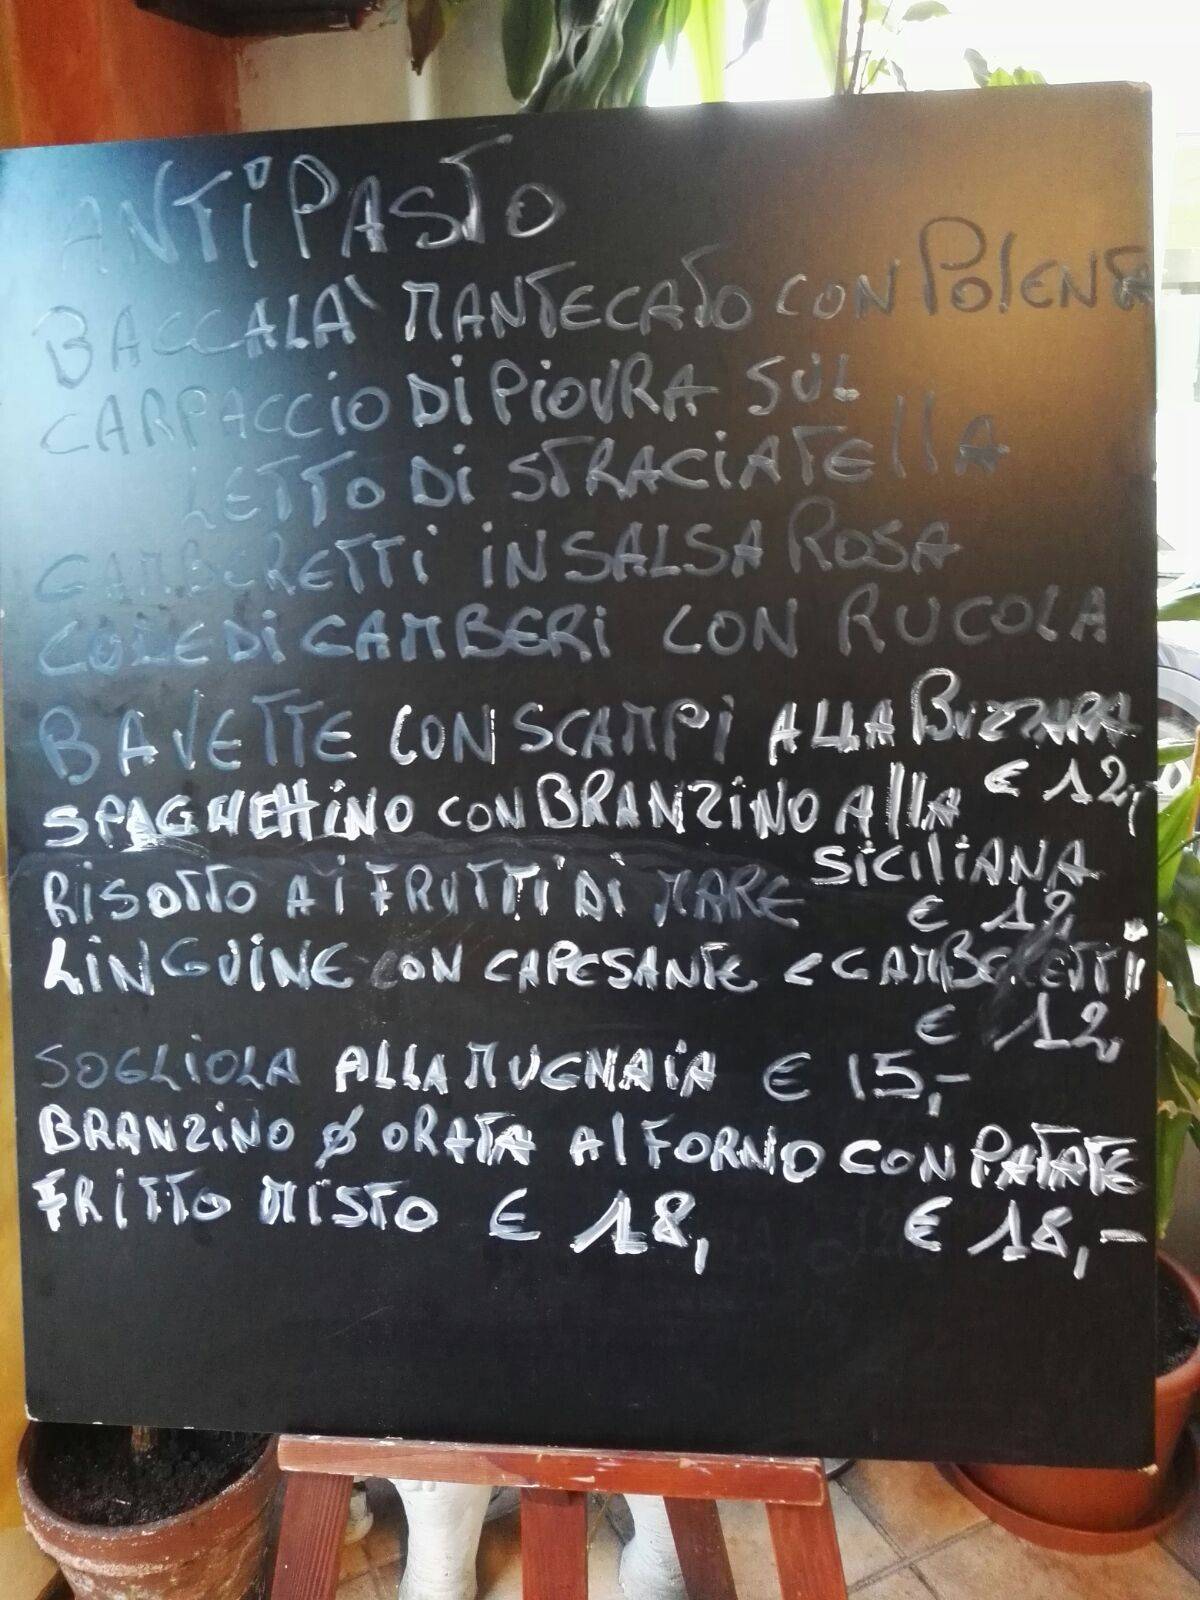 ANTiPASTO
BACCALA' MANTECATO CON POlENTA
CARPACCIO Di PiOVRA SUL
LETTO Di STRACIATEllA
GAMBERETTi iN SALSA ROSA
CODE Di GAMBERi CON RUCOLA
BAVETTE CON SCAMPi ALLA BUZZARA
€ 12,
SPAGHETTiNO CON BRANZiNO AllA
SiCiliANA
RiSOTTO Ai FRUTTi Di MARE € 12,
LiNGUiNE CON CAPESANTE e GAMBERETTi
€ 12,
SOGLiOLA ALLA MUGNAiA € 15,-
BRANZiNO O ORATA Al FORNO CON PATATE
FRiTTO MiSTO € 18, € 18,-